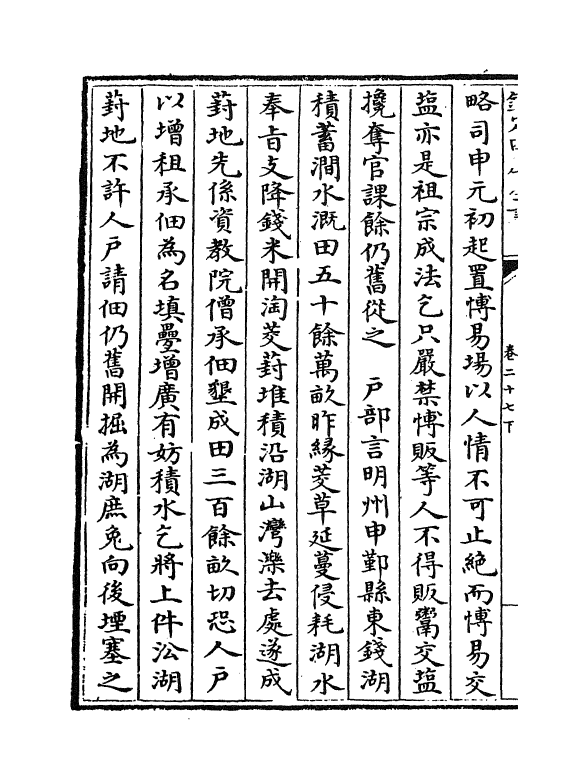 卷二十七下
略司申元初起置愽易場以人情不可止絶而愽易交
蓝亦是祖宗成法乞只嚴禁愽販等人不得販鬻交蓝
攙奪官課餘仍舊從之　戸部言明州申鄞縣東錢湖
積蓄澗水溉田五十餘萬畝昨緣茭草延蔓侵耗湖水
奉㫖支降錢米開淘茭葑堆積沿湖山灣濼去處遂成
葑地先係資教院僧承佃墾成田三百餘畝切恐人戸
以增租承佃為名填疊增廣有妨積水乞將上件㳂湖
葑地不許人戸請佃仍舊開掘為湖庶免向後堙塞之